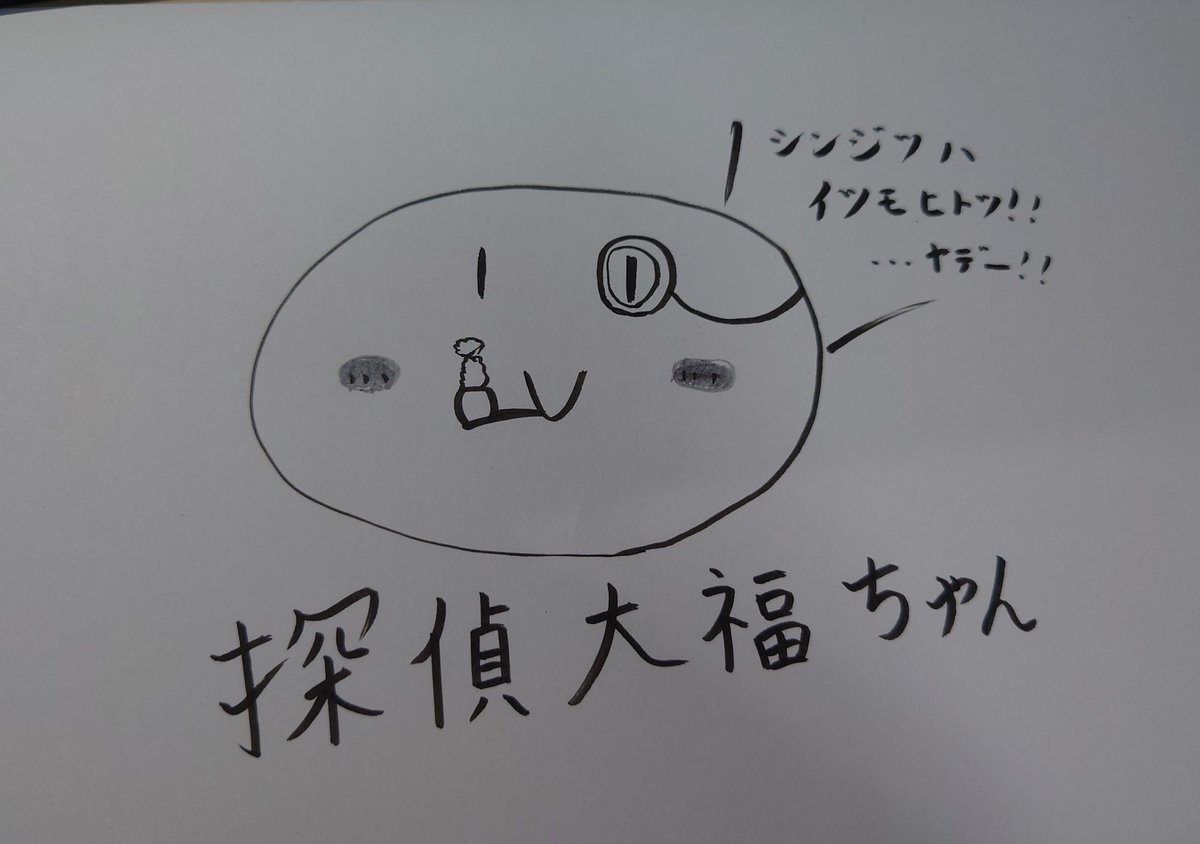 シンジツハ
イツモヒトツ!!
…ヤデー!!
探偵大福ちゃん